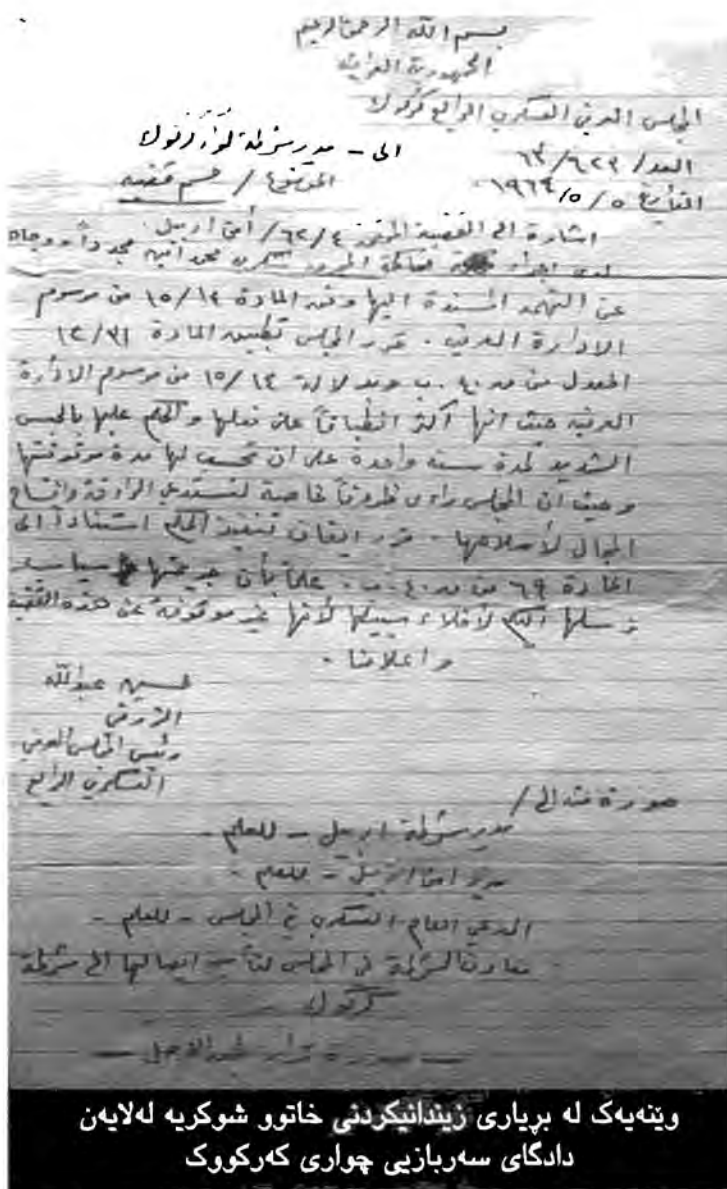 بسم الله الرحمن الرحيم
الجمهورية العراقية
المجلس العرفي العسكري الرابع كركوك
الى - مدير شرطة لواء كركوك
العدد/ ٦٢٢/ ٦٣
الموضوع / حسم قضية
التأريخ ٥ / ٥ /
اشارة الى القضية المرقمة ٦٢/٤/ أمن اربيل.
لدى اجراء محاكمة محمد مجدداً وجاهاً
عن التهمة المسندة اليها وفق المادة ١٥/١٤ من مرسوم
الادارة العرفية . قرر المجلس تطبيق المادة ١٢/٣١
المعدل من ق.ع.ب وبدلالة ١٥/١٤ من مرسوم الادارة
العرفية حيث انها اكثر انطباقاً على فعلها والحكم عليها بالحبس
الشديد لمدة سنة واحدة على ان تحسب لها مدة موقوفيتها
وحيث ان المجلس راى ظروفاً خاصة تستدعي الرأفة وافساح
المجال لأصلاحها . قرر ايقاف تنفيذ الحكم استناداً الى
المادة ٦٩ من ق.ع.ب . علماً بأن جريمتها سياسية
نرسلها اليكم لأخلاء سبيلها لأنها غير موقوفة عن هذه القضية
واعلامنا .
حسين عبدالله
رئيس المجلس العرفي
العسكري الرابع
صورة منه الى /
مدير شرطة اربيل - للعلم -
مدير امن اربيل - للعلم -
المدعي العام العسكري في المجلس - للعلم -
معاون الشرطة في المجلس ايصالها الى شرطة
كركوك
صورة قرار
وێنەیەک لە بڕیاری زیندانیکردنی خاتوو شوکریە لەلایەن
دادگای سەربازیی چواری کەرکووک